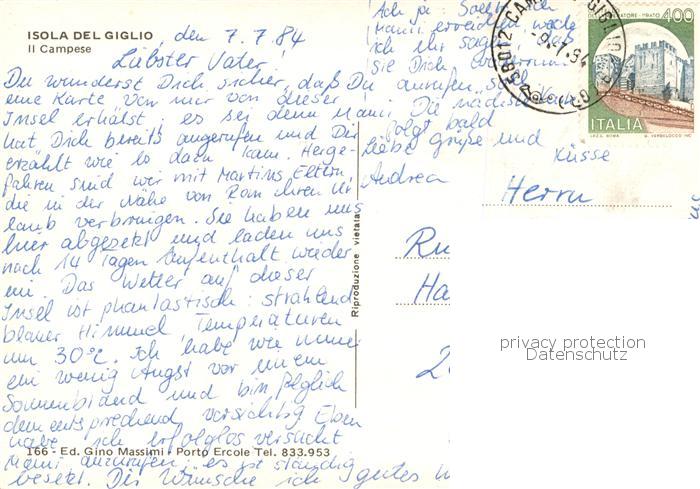 ISOLA DEL GIGLIO
Il Campese
den 7.7.84
Liebster Vater,
Du wunderst Dich sicher, daß Du
eine Karte von mir von dieser
Insel erhälst, es sei denn Mami
hat Dich bereits angerufen und Dir
erzählt wie es dazu kam. Herge-
fahren sind wir mit Martins Eltern,
die in der Nähe von Rom ihren Ur
laub verbringen. Sie haben uns
hier abgesetzt und laden uns
nach 14 Tagen Aufenthalt wieder
ein. Das Wetter auf dieser
Insel ist phantastisch: strahlend
blauer Himmel, Temperaturen
um 30°C. Ich habe wie immer
ein wenig Angst vor einem
Sonnenbrand und bin folglich
dementsprechend vorsichtig. Eben
habe ich erfolglos versucht
Mami anzurufen; es ist ständig
besetzt. Dir wünsche ich gutes
166 - Ed. Gino Massimi - Porto Ercole Tel. 833.953
Riproduzione vietata
Ach ja: Sollte ich
Mami erreichen, werde
ich ihr sagen, daß
sie Dich
anrufen soll.
Die nächste Karte
folgt bald
Liebe Grüße und
Küsse
Andrea
Herrn
Ru
Ha
2
58012
-9.7.84
400
ITALIA
I.P.Z.S. ROMA
privacy protection
Datenschutz